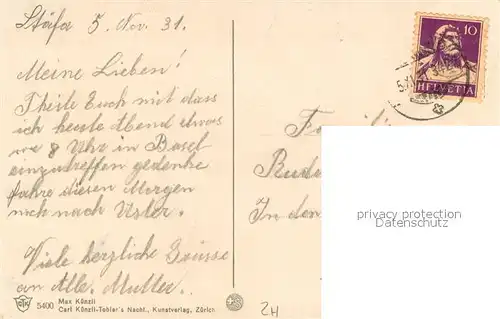 Stäfa 5. Nov. 31.
Meine Lieben!
Theile Euch mit dass
ich heute Abend etwas
vor 8 Uhr in Basel
einzutreffen gedenke
fahre diesen Morgen
noch nach Uster.
Viele herzliche Grüsse
an Alle. Mutter.
10
HELVETIA
In den
privacy protection
Datenschutz
5400
Max Künzli
Carl Künzli-Tobler's Nachf., Kunstverlag, Zürich
ZH